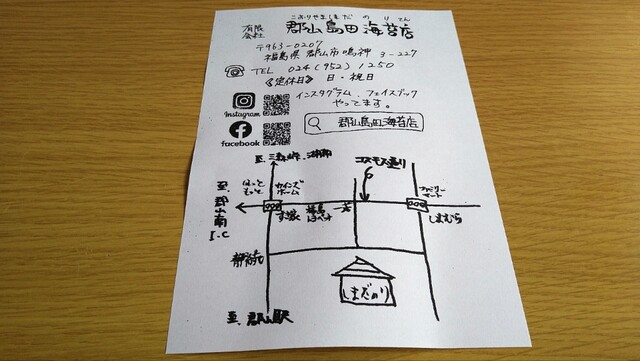 こおりやましまだのりてん
有限会社 郡山島田海苔店
〒963-0207
福島県郡山市鳴神3-227
TEL 024(952)1250
《定休日》 日・祝日
インスタグラム、フェイスブック
やってます。
Instagram
facebook
郡山島田海苔店
至.三森峠、湖南
コスモス通り
ほっともっと
カインズホーム
ファミリーマート
至.郡山南I.C
すき家
福島
しまむら
静海苑
しまだのり
至.郡山駅